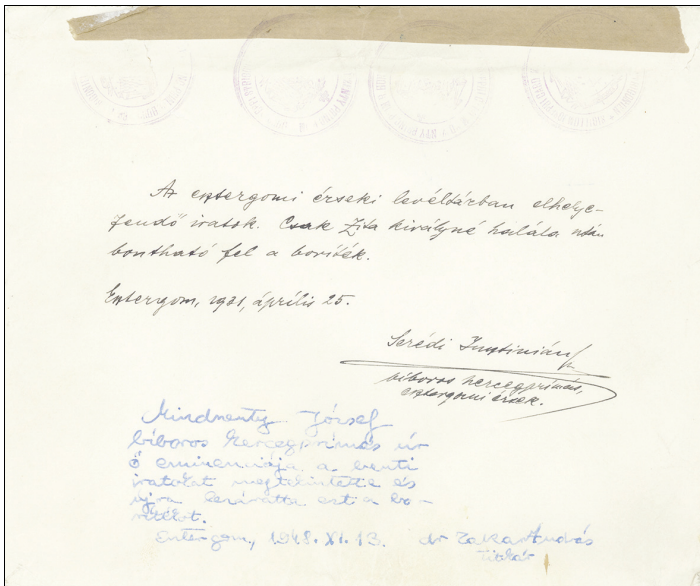 Az esztergomi érseki levéltárban elhelye-
zendő iratok. Csak Zita királyné halála után
bontható fel a boríték.
Esztergom, 1931, április 25.
Serédi Jusztinián
bíboros hercegprímás,
esztergomi érsek.
Mindszenty József
bíboros hercegprímás úr
ő eminenciája a benti
iratokat megtekintette és
újra lezáratta ezt a bo-
rítékot.
Esztergom, 1948. XI. 13. dr Zakar András
titkár